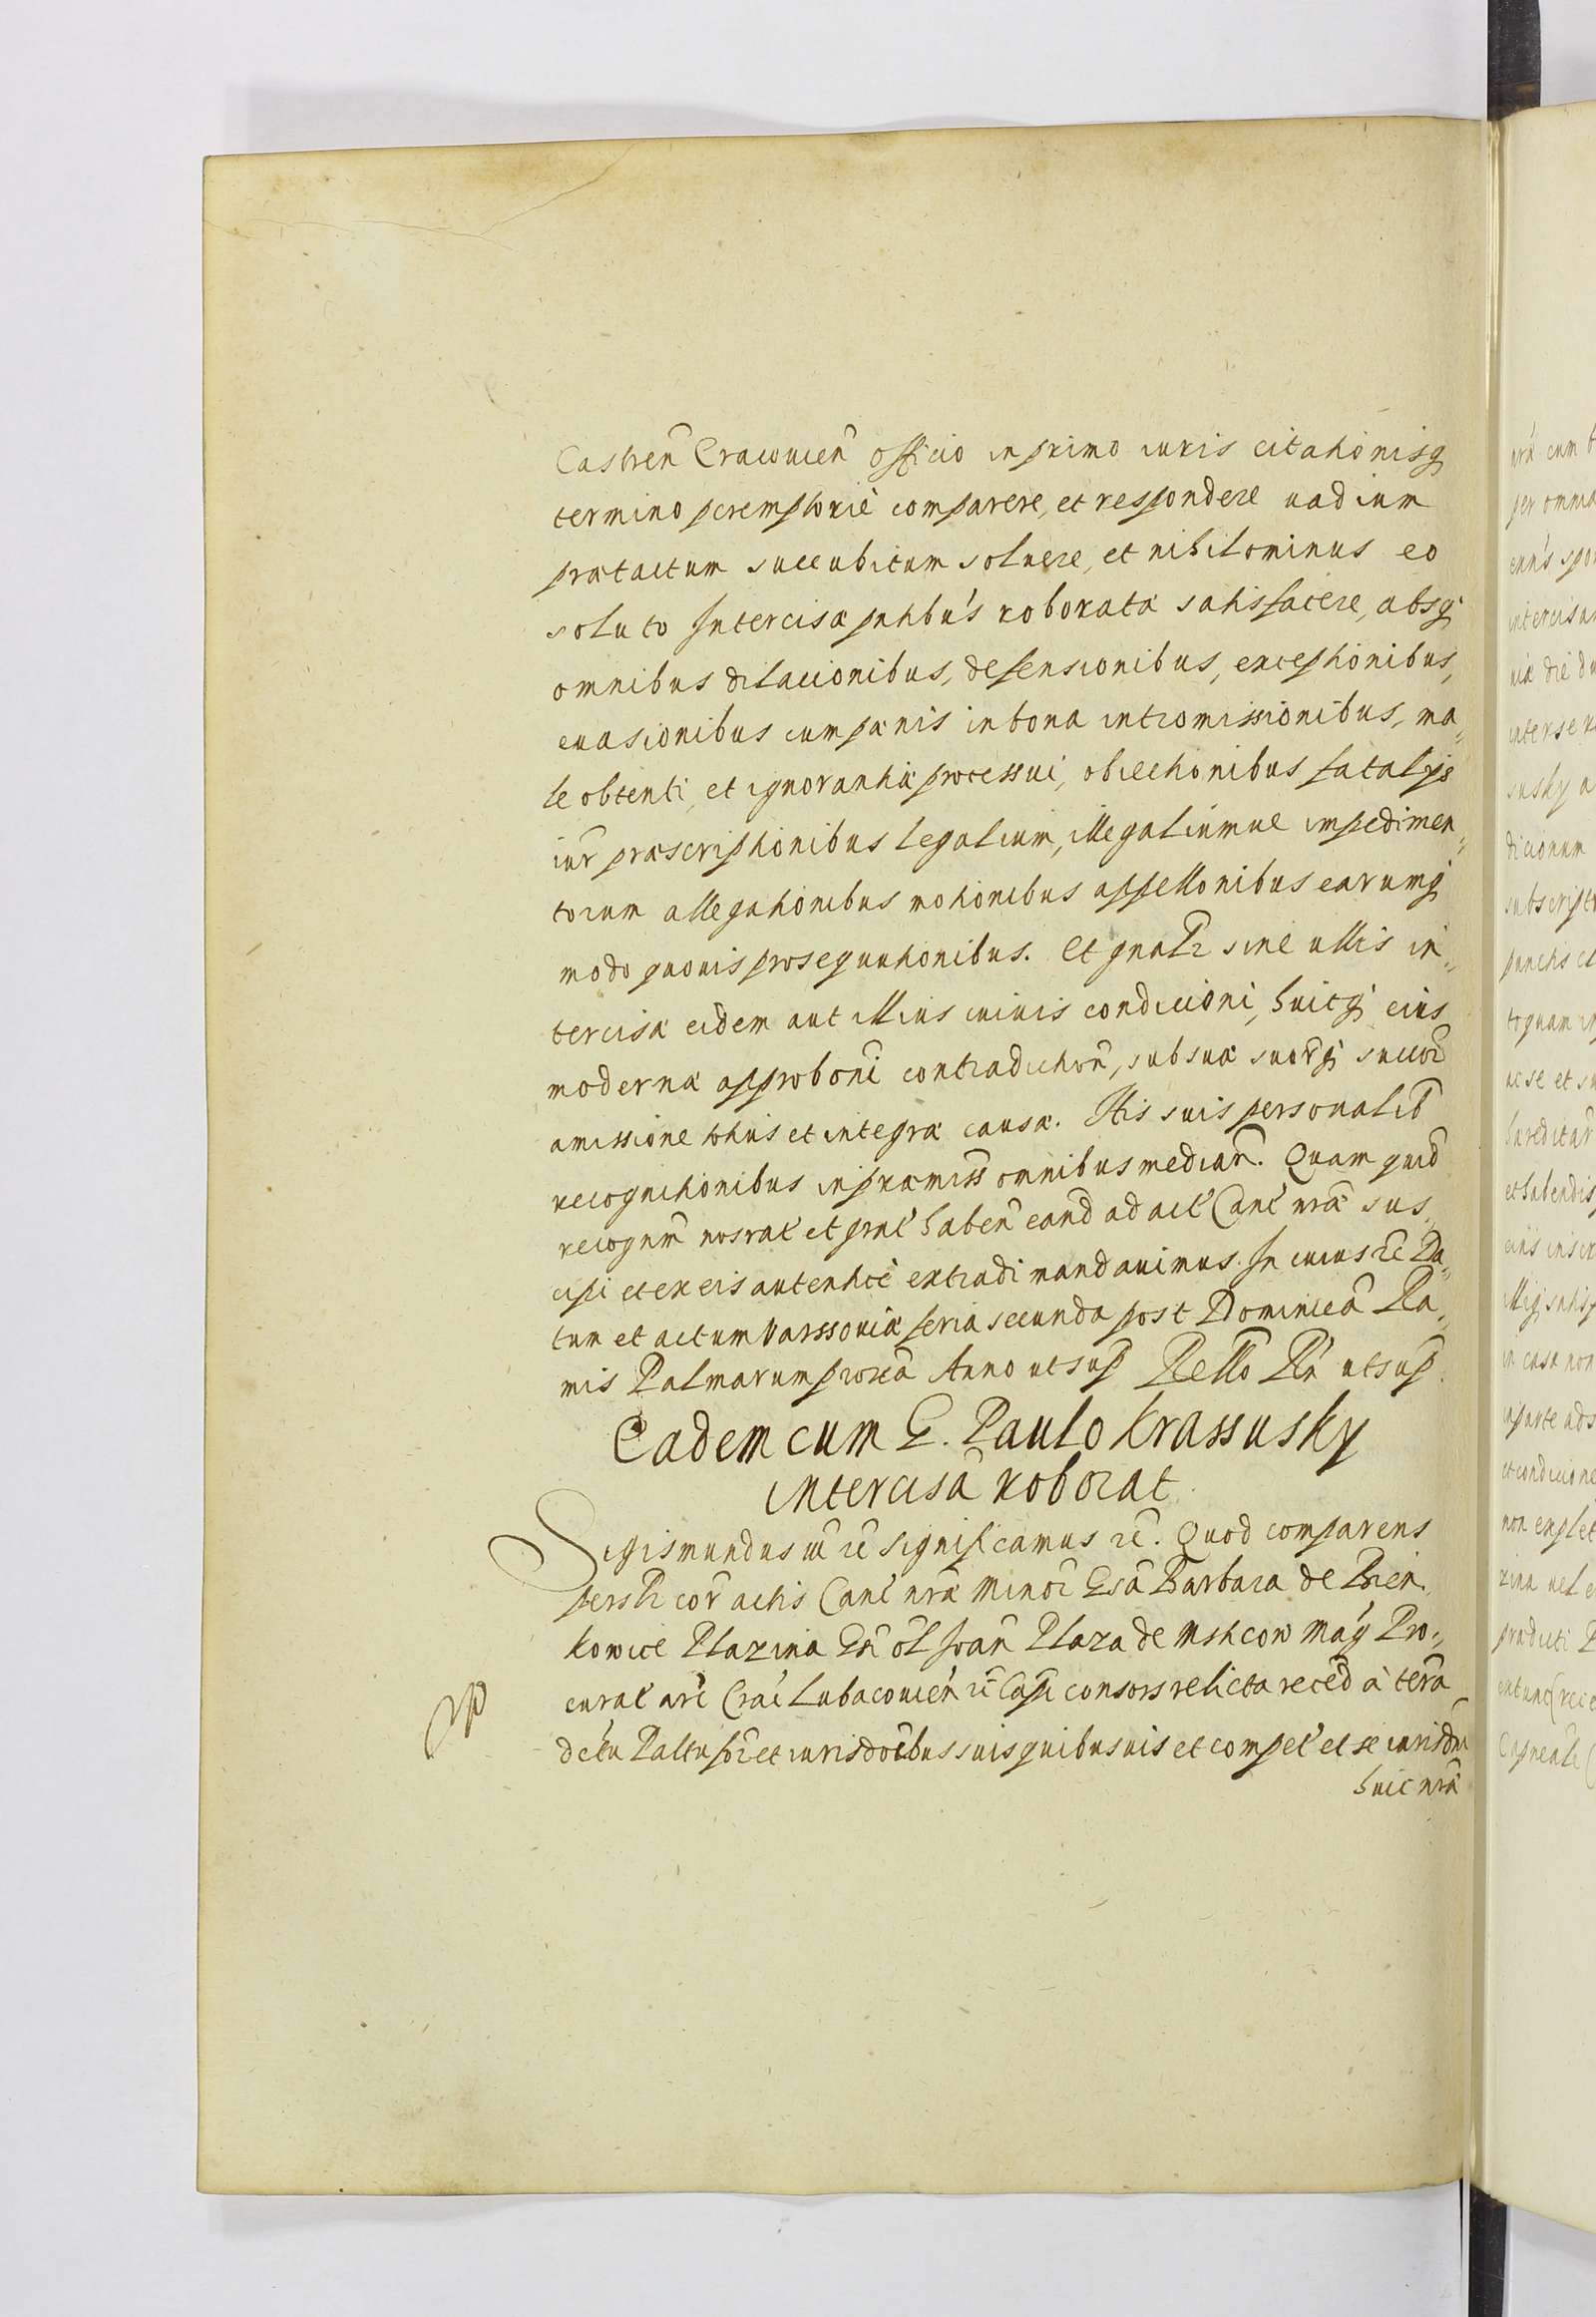 Castren̄ Cracouien̄ officio in primo iuris citationisq́
termino peremptoriè comparere, et respondere uadium
prætactum succubitum soluere, et nihilominus eo
soluto Intercisæ pntibús roboratæ satisfacere, absq́
omnibus dilacionibus, defensionibus, exceptionibus,
euasionibus cum pænis in bona intromissionibus, ma„
le obtenti, et ignorantiæ processui, obiectionibus fatalȳs
iur̄ præscriptionibus legalium, illegaliumue impedimen„
torum allegationibus motionibus appellonibus earumq́
modo quouis prosequutionibus. Et gnalr̄ sine ullis in„
tercisæ eidem aut illius cuiuis condicioni, huicq́ eius
modernæ approboni contradiction̄, sub suæ suorq́ succor̄
amissione totius et integræ causæ. His suis personalib̄
recognitionibus in præmiss̄ omnibus median̄. Quam quid̄
recogn̄m nos rat́ et grat́ haben̄ eand̄ ad act́ Canć nr̄æ sus„
cipi et ex eis autenticè extradi mandauimus. In cuius rc̄ Da„
tum et actum Varssouiæ feria secunda post Dominicā Ra„
mis Palmarum proxā Anno ut sup̄ Rello Rń ut sup̄.
Eadem cum G. Paulo Krassusky
intercisā roborat
Sigismundus III rc̄ Significamus rc̄. Quod comparens
persr̄ cor̄ actis Canć nr̄æ Minor̄ Gsā Barbara de Bień„
kowice Plazina Gsi ol̄ Joan̄ Plaza de Msticow Mag̓ Pro„
curat́ arć Crać Lubaconień rc̄ Capi consors relicta reced̄ à terā
dćtu Paltu for̄ et iurisdōibus suis quibusuis et compet́ et se iurisdni
huic nr̄æ